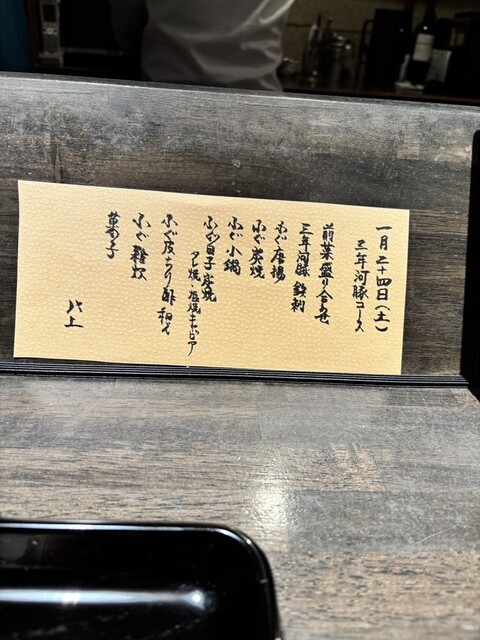 一月二十四日(土)
三年河豚コース
前菜盛り合わせ
三年河豚 鉄刺
ふぐ唐揚
ふぐ炭焼
ふぐ小鍋
ふぐ白子炭焼
タレ焼・塩焼キャビア
ふぐ皮ちり酢和え
ふぐ雑炊
菓子
以上